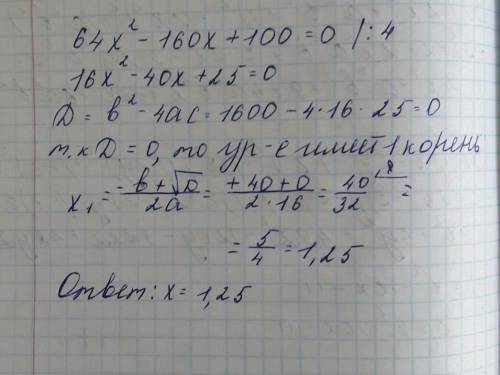 64x² - 160x + 100 = 0 /:4
16x² - 40x + 25 = 0
D = b² - 4ac = 1600 - 4·16·25 = 0
т.к D = 0, то ур-е имеет 1 корень
x₁ = (-b + √D)/2a = (+40+0)/(2·16) = 40/32 ⁽:⁸ =
= 5/4 = 1,25
Ответ: x = 1,25